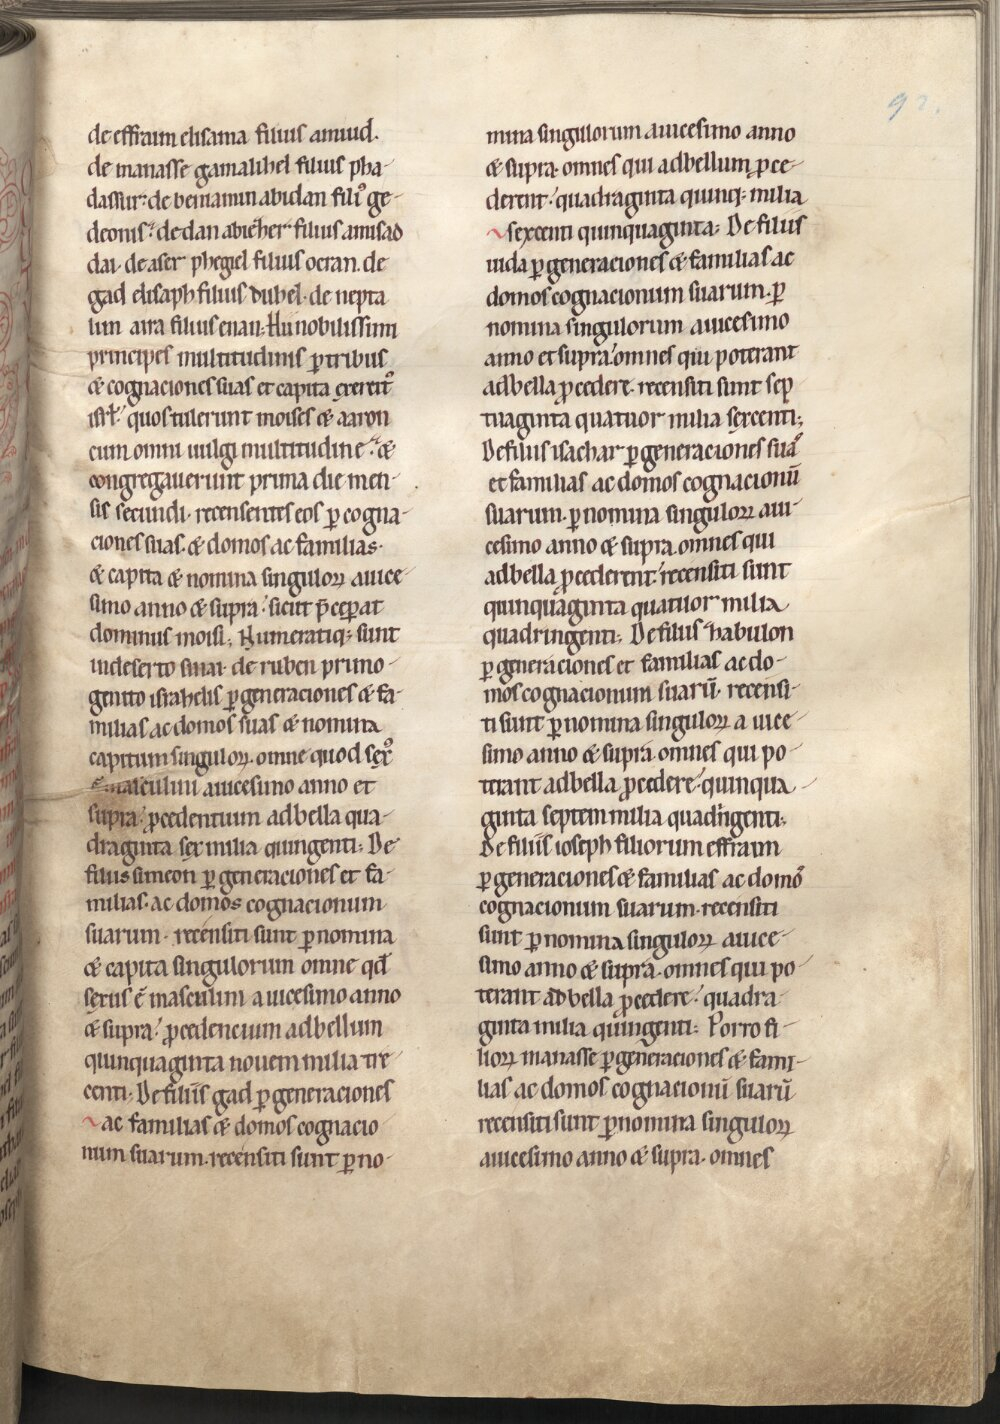 92.
de effraim elisama filius amiud.
de manasse gamalihel filius pha-
dassur: de beniamin abidan filiꝰ ge-
deonis: de dan abiecher filius amisad
dai. de aser phegiel filius ocran. de
gad elisaph filius duhel. de nepta
lim aira filius enan: Hii nobilissimi
principes multitudinis ꝑ tribus
& cogniaciones suas et capita exercitꝰ
isrł: quos tulerunt moises & aaron
cum omni uulgi multitudine: &
congregauerunt prima die men-
sis secundi. recensentes eos ꝑ cogna-
ciones suas. & domos ac familias.
& capita & nomina singuloꝝ auice-
simo anno & supra: sicut p̄ceperat
dominus moisi; Numeratiq; sunt
indeserto sinai. de ruben primo-
genito israhelis ꝑ generaciones & fa-
milias ac domos suas & nomina
capitum singuloꝝ. omne quod sexꝰ
ē masculini auicesimo anno et
supra: ꝓcedentium adbella qua-
draginta sex milia quingenti: De
filiis simeon ꝑ generaciones et fa-
milias. ac domos cognacionum
suarum. recensiti sunt ꝑ nomina
& capita singulorum omne qđ
sexus ē masculini auicesimo anno
& supra: ꝓcedencium adbellum
quinquaginta nouem milia tre-
centi: De filiis gad ꝑ generaciones
ac familias & domos cognacio
num suarum. recensiti sunt ꝑ no-
mina singulorum auicesimo anno
& supra. omnes qui adbellum ꝓce-
derent: quadraginta quinq; milia
sexcenti quinquaginta: De filiis
iuda ꝑ generaciones & familias ac
domos cognacionum suarum. ꝑ
nomina singulorum auicesimo
anno et supra: omnes qui poterant
adbella ꝓcedere. recensiti sunt sep
tuaginta quatuor milia sexcenti;
De filiis isachar ꝑ generaciones suā
et familias ac domos cognacionū
suarum. ꝑ nomina singuloꝝ aui-
cesimo anno & supra. omnes qui
adbella ꝓcederent: recensiti sunt
quinquaginta quatuor milia
quadringenti; De filiis habulon
ꝑ generaciones et familias ac do-
mos cognacionum suarū. recensi-
ti sunt ꝑ nomina singuloꝝ a uice-
simo anno & supra. omnes qui po-
terant adbella ꝓcedere: quinqua-
ginta septem milia quadrigenti;
De filiis ioseph filiorum effraim
ꝑ generaciones & familias ac domō
cognacionum suarum. recensiti
sunt ꝑ nomina singuloꝝ auice-
simo anno & supra. omnes qui po-
terant adbella ꝓcedere: quadra-
ginta milia quingenti: Porro fi-
lioꝝ manasse ꝑ generaciones & fami-
lias ac domos cognacionū suarū
recensiti sunt ꝑ nomina singuloꝝ
auicesimo anno & supra. omnes